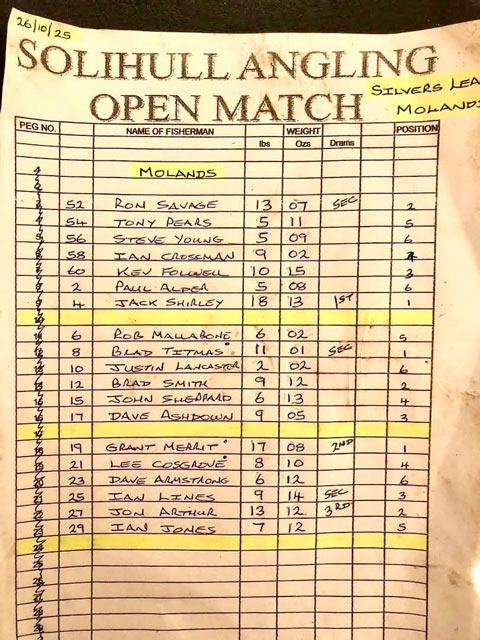 26/10/25
SOLIHULL ANGLING
OPEN MATCH
SILVERS LEA
MOLANDS
PEG NO. NAME OF FISHERMAN WEIGHT POSITION
lbs Ozs Drams
MOLANDS
52 RON SAVAGE 13 07 SEC 2
54 TONY PEARS 5 11 5
56 STEVE YOUNG 5 09 6
58 IAN CROSSMAN 9 02
60 KEV FOLWELL 10 15 3
2 PAUL ALDER 5 08 6
4 JACK SHIRLEY 18 13 1ST 1
6 ROB MALLABONE 6 02 5
8 BRAD TITMAS 11 01 SEC 1
10 JUSTIN LANCASTER 2 02 6
12 BRAD SMITH 9 12 2
15 JOHN SHEPPARD 6 13 4
17 DAVE ASHDOWN 9 05 3
19 GRANT MERRIT 17 08 2ND 1
21 LEE COSGROVE 8 10 4
23 DAVE ARMSTRONG 6 12 6
25 IAN LINES 9 14 SEC 3
27 JON ARTHUR 13 12 3RD 2
29 IAN JONES 7 12 5